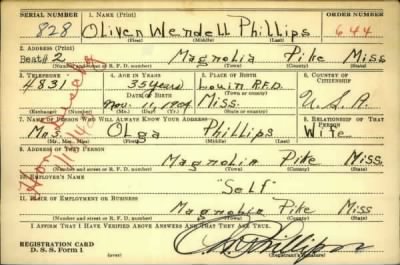 SERIAL NUMBER 1. NAME (Print) ORDER NUMBER
828 Oliver Wendell Phillips 644
(First) (Middle) (Last)
2. ADDRESS (Print)
Beat #2 Magnolia Pike Miss
(Number and street or R. F. D. number) (Town) (County) (State)
3. TELEPHONE 4. AGE IN YEARS 5. PLACE OF BIRTH 6. COUNTRY OF CITIZENSHIP
4831 35 years Louin R.F.D.
DATE OF BIRTH
Nov. 11, Miss. U.S.A.
(Exchange) (Number) (Mo.) (Day) (Yr.) (State or country)
7. NAME OF PERSON WHO WILL ALWAYS KNOW YOUR ADDRESS 8. RELATIONSHIP OF THAT PERSON
Mrs. Olga Phillips Wife
(Mr., Mrs., Miss) (First) (Middle) (Last)
9. ADDRESS OF THAT PERSON
Magnolia Pike Miss.
(Number and street or R. F. D. number) (Town) (County) (State)
10. EMPLOYER'S NAME
"Self"
11. PLACE OF EMPLOYMENT OR BUSINESS
Magnolia Pike Miss
(Number and street or R. F. D. number) (Town) (County) (State)
I AFFIRM THAT I HAVE VERIFIED ABOVE ANSWERS AND THAT THEY ARE TRUE.
REGISTRATION CARD
D. S. S. Form 1 Phillips
(Registrant's signature)